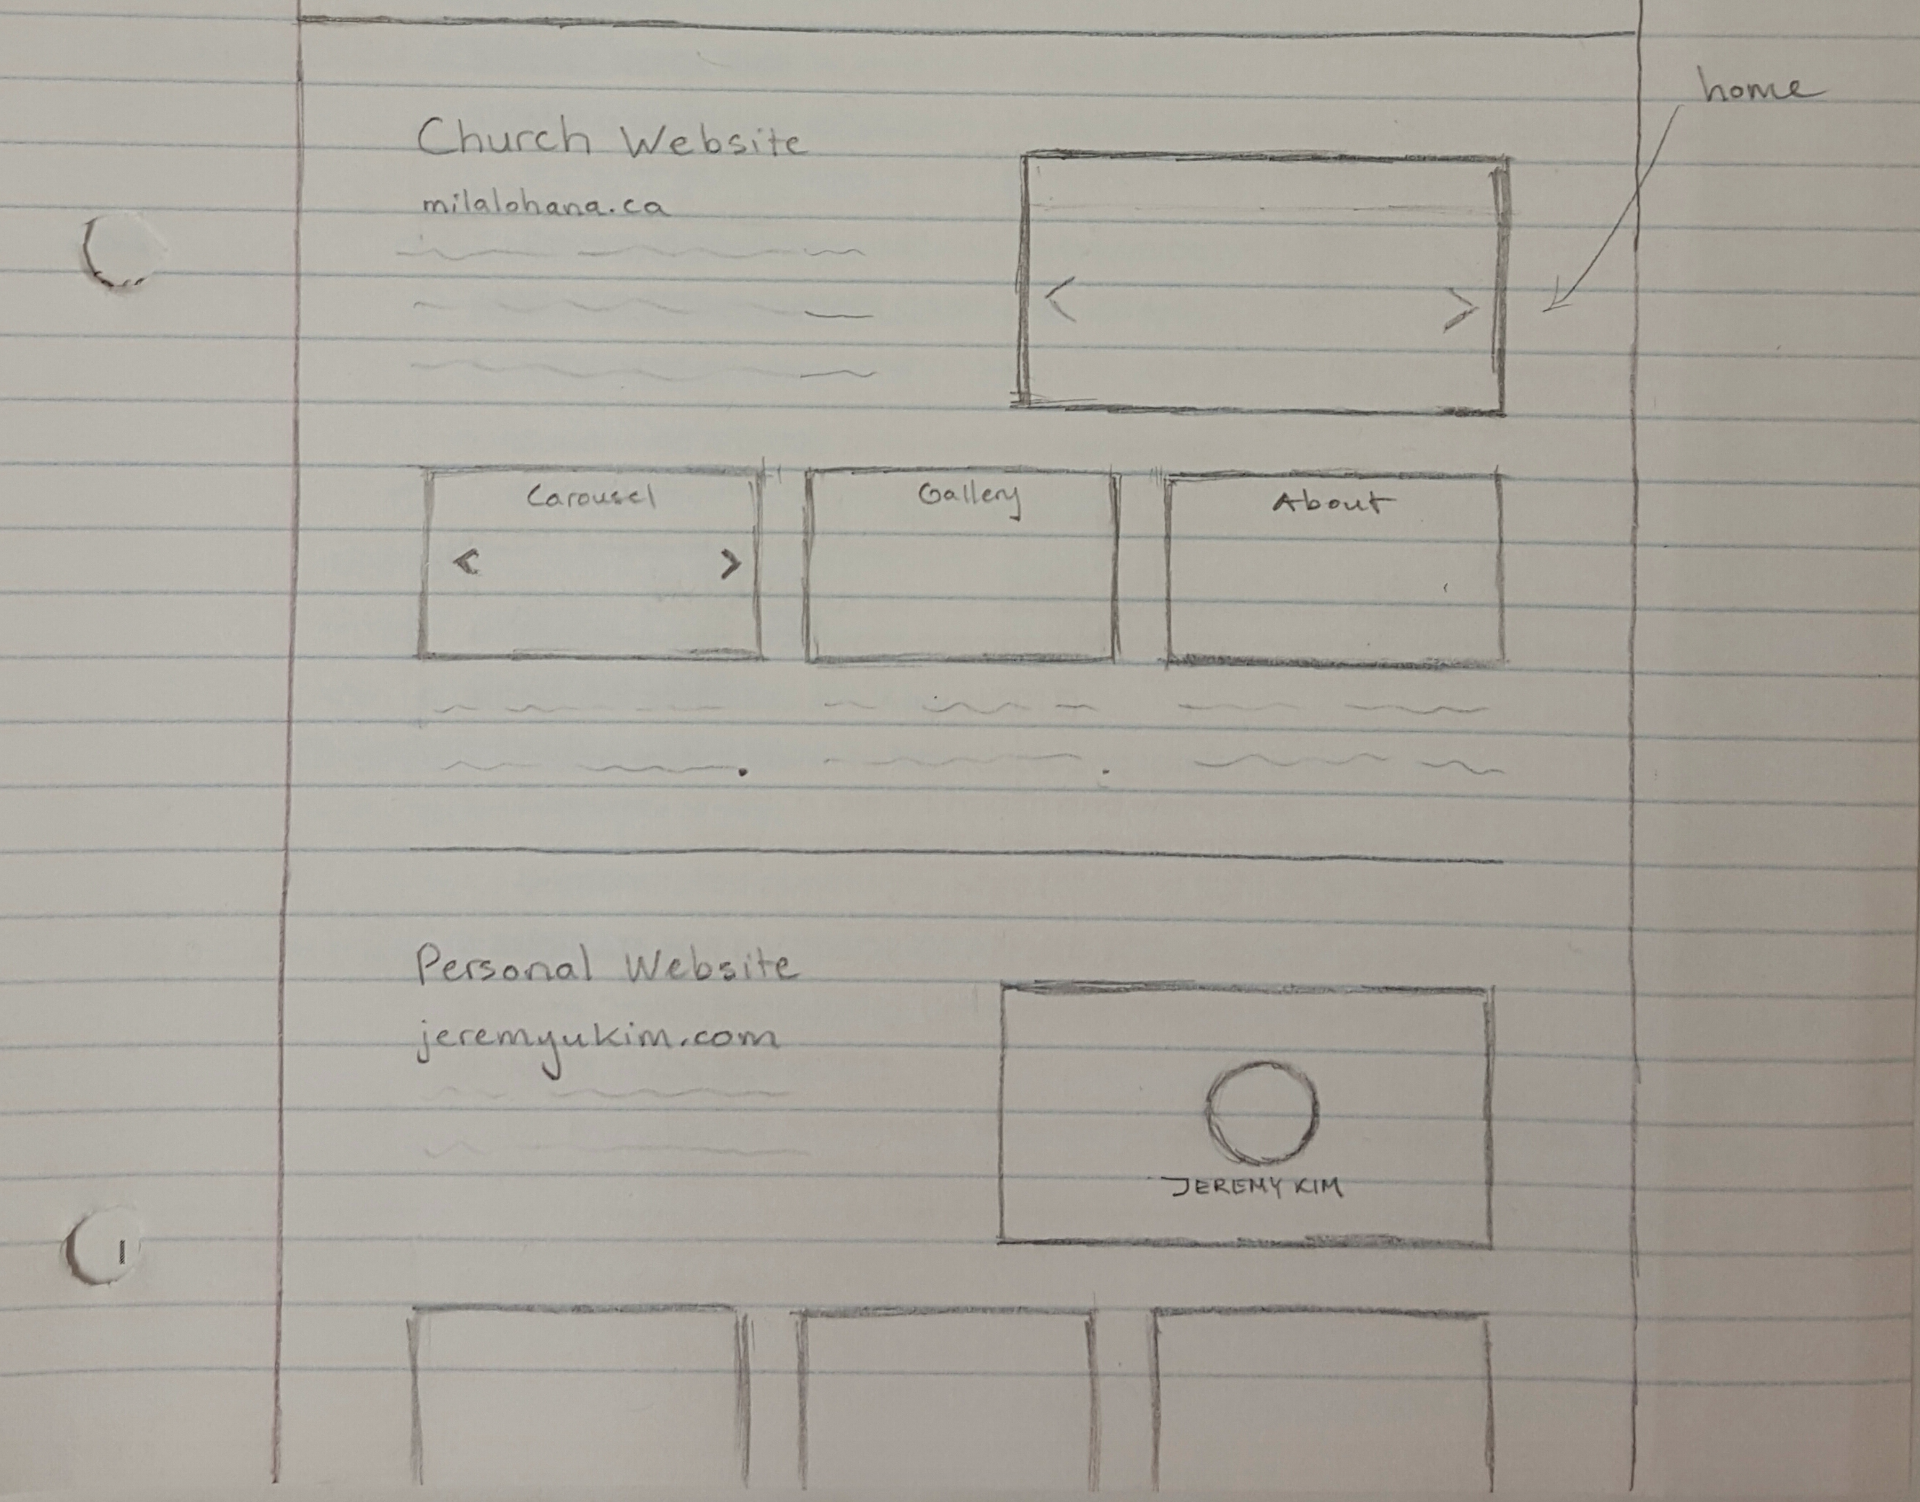 home
Church Website
milalohana.ca
< >
Carousel
< >
Gallery
About
Personal Website
jeremyukim.com
JEREMY KIM